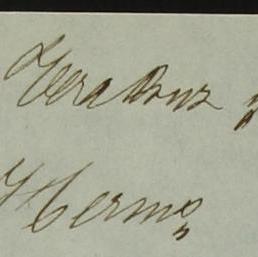 Vera Cruz
Hermo